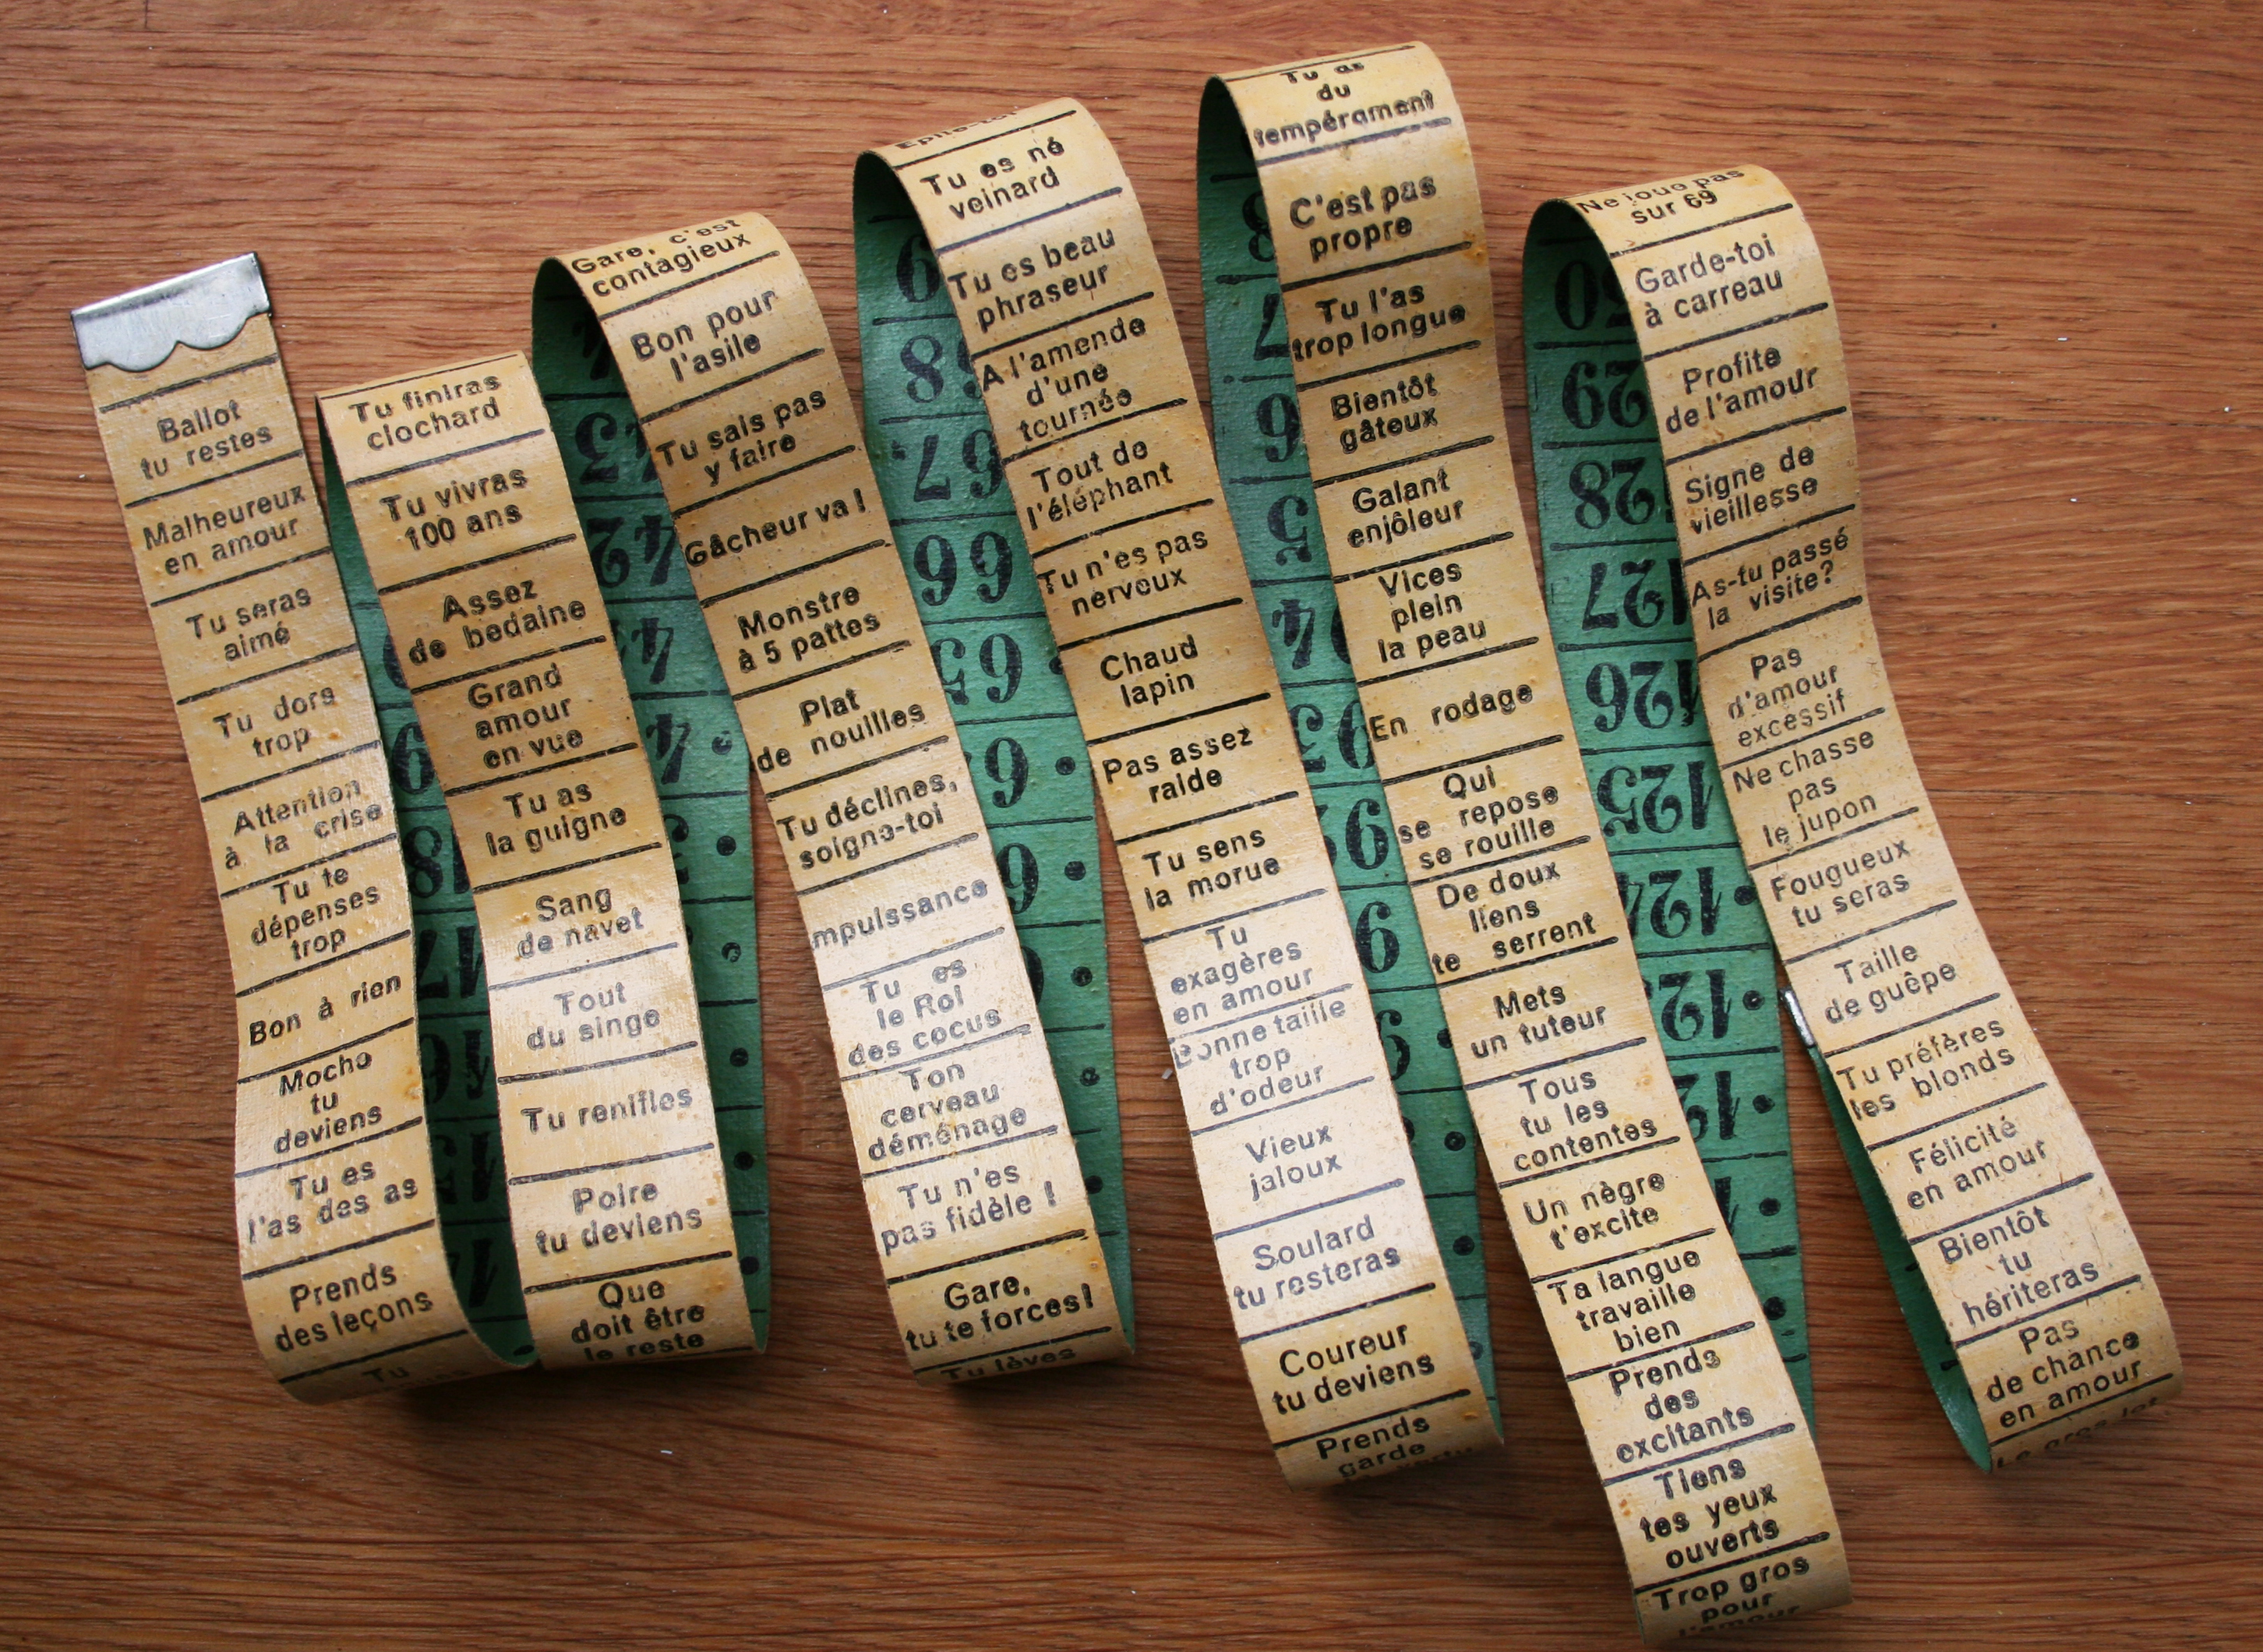 Ballot
tu restes
Malheureux
en amour
Tu seras
aimé
Tu dors
trop
Attention
à la crise
Tu te
dépenses
trop
Bon à rien
Moche
tu
deviens
Tu es
l'as des as
Prends
des leçons
Tu
Tu finiras
clochard
Tu vivras
100 ans
Assez
de bedaine
Grand
amour
en vue
Tu as
la guigne
Sang
de navet
Tout
du singe
Tu renifles
Poire
tu deviens
Que
doit être
le reste
Gare, c'est
contagieux
Bon pour
l'asile
Tu sais pas
y faire
Gâcheur va !
Monstre
à 5 pattes
Plat
de nouilles
Tu déclines,
soigne-toi
mpuissance
Tu es
le Roi
des cocus
Ton
cerveau
déménage
Tu n'es
pas fidèle !
Gare,
tu te forces!
Tu lèves
Epile-toi
Tu es né
veinard
Tu es beau
phraseur
A l'amende
d'une
tournée
Tout de
l'éléphant
Tu n'es pas
nerveux
Chaud
lapin
Pas assez
raide
Tu sens
la morue
Tu
exagères
en amour
Bonne taille
trop
d'odeur
Vieux
jaloux
Soulard
tu resteras
Coureur
tu deviens
Prends
garde
Tu as
du
tempérament
C'est pas
propre
Tu l'as
trop longue
Bientôt
gâteux
Galant
enjôleur
Vices
plein
la peau
En rodage
Qui
se repose
se rouille
De doux
liens
te serrent
Mets
un tuteur
Tous
tu les
contentes
Un nègre
t'excite
Ta langue
travaille
bien
Prends
des
excitants
Tiens
tes yeux
ouverts
Trop gros
pour
l'amour
Ne joue pas
sur 69
Garde-toi
à carreau
Profite
de l'amour
Signe de
vieillesse
As-tu passé
la visite?
Pas
d'amour
excessif
Ne chasse
pas
le jupon
Fougueux
tu seras
Taille
de guêpe
Tu préfères
les blonds
Félicité
en amour
Bientôt
tu
hériteras
Pas
de chance
en amour
Le gros lot
18
17
16
43
42
68
67
66
65
7
6
5
4
93
92
29
28
127
126
125
124